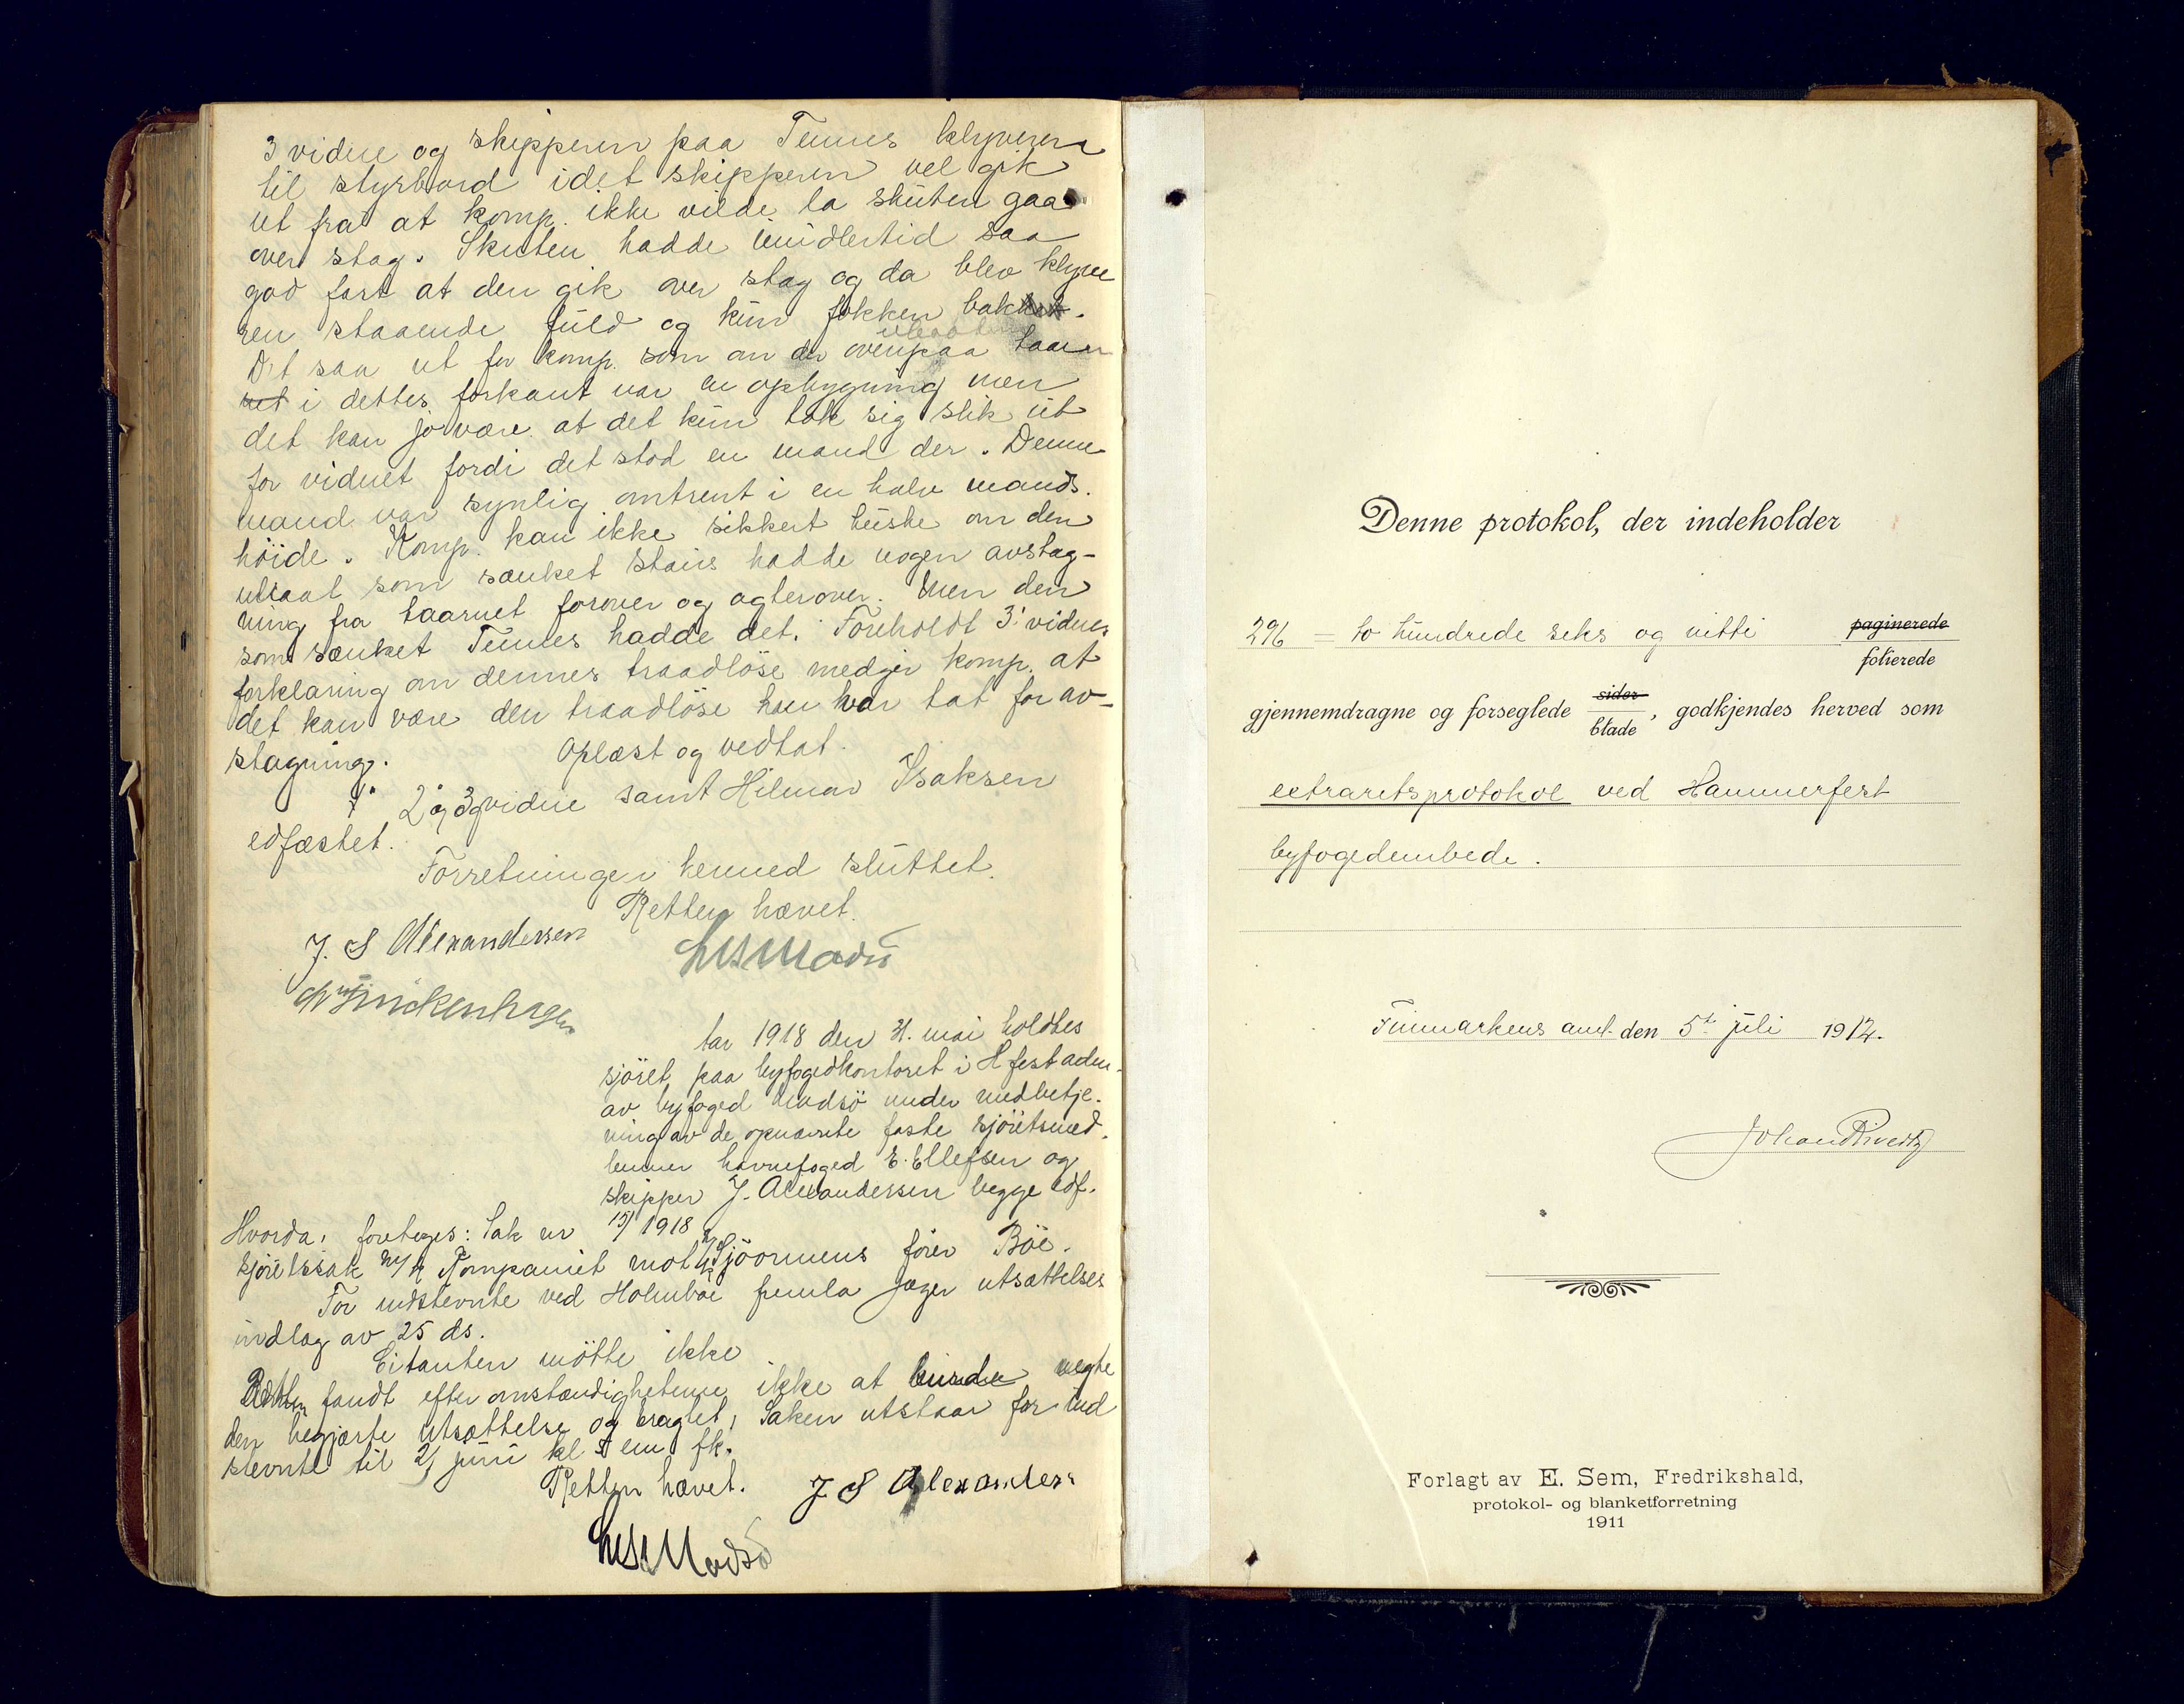 3 vidne og skipperen paa Tennes klyveren
til styrbord idet skipperen vel gik
ut fra at komp. ikke vilde la skuten gaa
over stag. Skuten hadde imidlertid saa
god fart at den gik over stag og da blev klyve
ren staaende fuld og kun fokken bakket.
Det saa ut for komp. som om der ovenpaa taarn
net i dettes forkant var en opbygning men
det kan jo være at det kun tok sig slik ut
for vidnet fordi det stod en mand der. Denne
mand var synlig omtrent i en halv mands.
höide. Komp. kan ikke sikkert huske om den
ubaat som sænket Stairs hadde nogen avstag-
ning fra taarnet forover og agterover. Men den
som sænket Tennes hadde det. Foreholdt 3' vidnes
forklaring om dennes traadlöse medgir komp. at
det kan være den traadlöse han har tat for av-
stagning. Oplæst og vedtat.
1° 2° og 3 vidne samt Hilmar Isaksen
edfæstet.
Forretningen hermed sluttet.
Retten hævet.
J. S Alexandersen
Finckenhagen
Aar 1918 den 31. mai holdtes
sjöret paa byfogedkontoret i Hfest adm.
av byfoged Madsö under medbetje-
ning av de opnævnte faste sjöretsmed.
lemmer havnefoged E. Ellefsen og
skipper J. Alexandersen begge edf.
Hvorda: foretoges: Sak nr 15/1918
sjöretssak Kompaniet mot Sjöormens förer Böe.
For indstevnte ved Holmboe fremla utsættelses
indlæg av 25 ds.
Citanten mötte ikke
Retten fandt efter omstændigheterne ikke at burde negte
den begjærte utsættelse og eragtet: Saken utstaar for ind
stevnte til 21 juni kl 5 em fk.
Retten hævet. J S Alexanders
Madsö
Denne protokol, der indeholder
296 = to hundrede seks og nitti paginerede
folierede
gjennemdragne og forseglede sider
blade, godkjendes herved som
extraretsprotokol ved Hammerfest
byfogedembede.
Finmarkens amt den 5te juli 1912.
Johan Rivertz
Forlagt av E. Sem, Fredrikshald,
protokol- og blanketforretning
1911